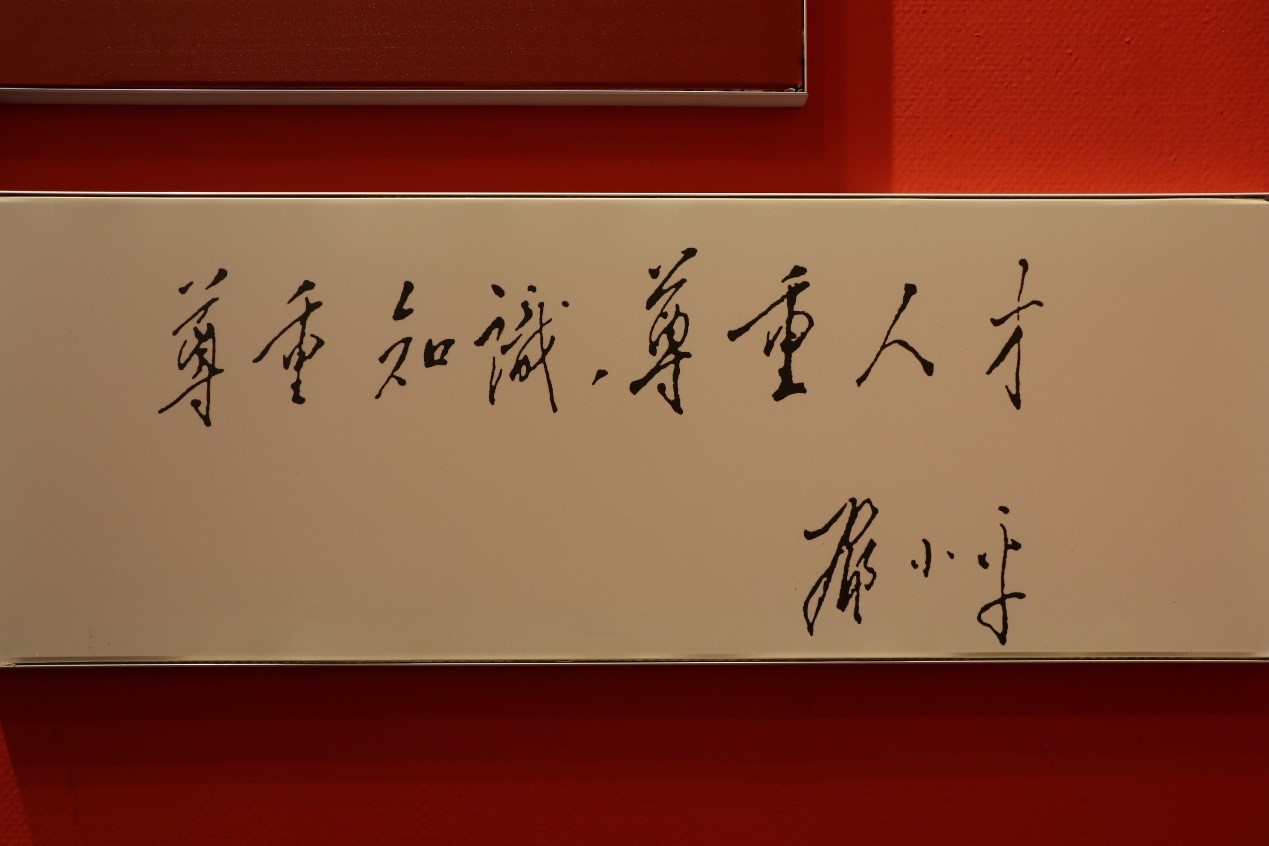 尊重知識、尊重人才
鄧小平